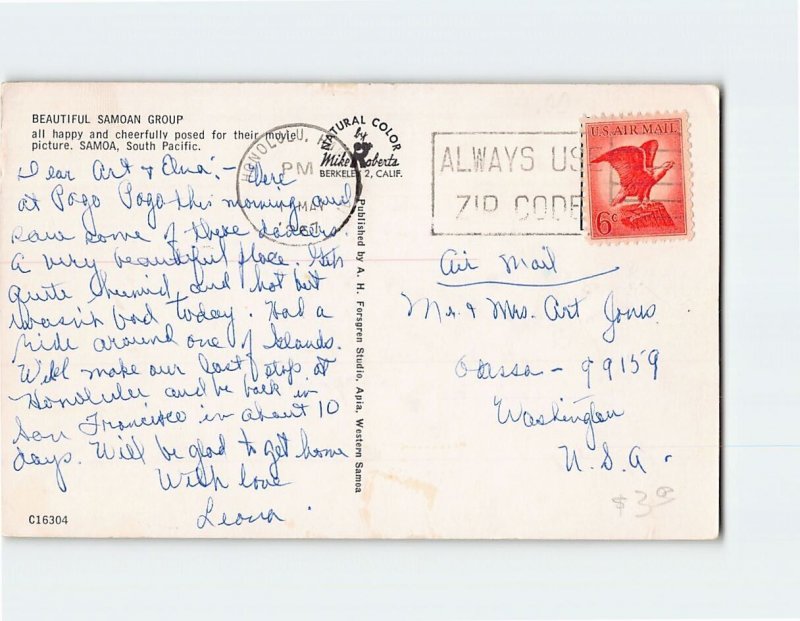 BEAUTIFUL SAMOAN GROUP
all happy and cheerfully posed for their movie
picture. SAMOA, South Pacific.
Dear Art & Edna: - Here
at Pago Pago this morning and
saw some of these dancers.
A very beautiful place. Gets
quite humid and hot but
wasn't bad today. Had a
ride around one of Islands.
Will make our last stop at
Honolulu and be back in
San Francisco in about 10
days. Will be glad to get home
With love
Leona
C16304
NATURAL COLOR
by
Mike Roberts
BERKELEY 2, CALIF.
Published by A. H. Forsgren Studio, Apia, Western Samoa
HONOLULU, H
PM
MAY
ALWAYS USE
ZIP CODE
U.S. AIR MAIL
6c
Air Mail
Mr. & Mrs. Art Jones
99159
Washington
U.S.A.
$3.00